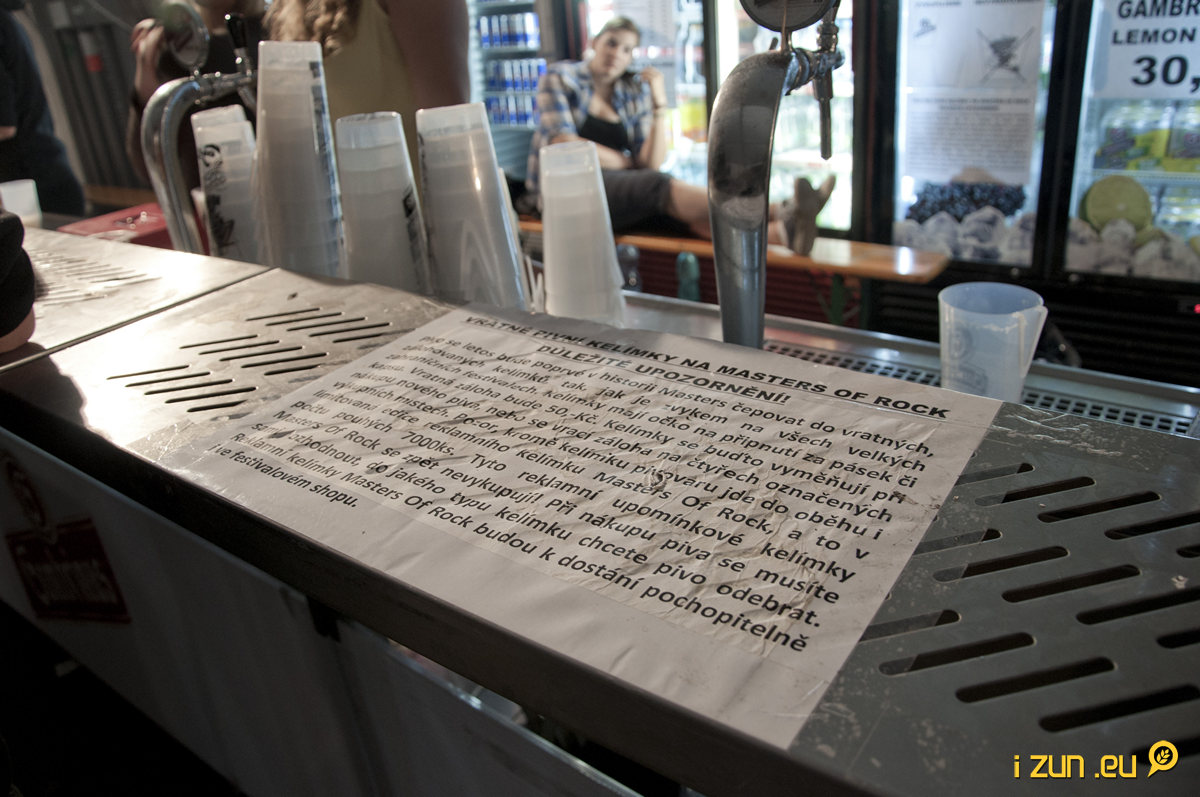 GAMBR
LEMON
30,
VRATNÉ PIVNÍ KELÍMKY NA MASTERS OF ROCK
DŮLEŽITÉ UPOZORNĚNÍ!
Pivo se letos bude poprvé v historii Masters čepovat do vratných,
zálohovaných kelímků, tak jak je zvykem na všech velkých
zahraničních festivalech. Kelímky mají očko na připnutí za pásek či
kapsu. Vratná záloha bude 50,-Kč. Kelímky se buďto vyměňují při
nákupu nového piva nebo se vrací záloha na čtyřech označených
výkupních místech. Pozor, kromě kelímku pivovaru jde do oběhu i
limitovaná edice reklamního kelímku Masters Of Rock, a to v
počtu pouhých 7000ks. Tyto reklamní upomínkové kelímky
Masters Of Rock, se zpět nevykupují! Při nákupu piva se musíte
sami rozhodnout, do jakého typu kelímku chcete pivo odebrat.
Reklamní kelímky Masters Of Rock budou k dostání pochopitelně
i ve festivalovém shopu.
i zun .eu